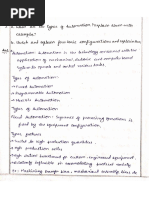 1. a. What are the types of Automation? Explain them with
example?
b. Sketch and explain four basic configurations and applications
Ans:- Automation: Automation is the technology associated with the
application of mechanical electronic and computer based
system to operate and control various tasks.
Types of Automation:-
→ Fixed Automation
→ Programmable Automation
→ Flexible Automation
Types of Automation:-
Fixed Automation: Sequence of processing operations is
fixed by the equipment configuration.
Types features
→ Suited to high production quantities
→ High production rates
→ High initial investment for custom engineered equipment.
→ Relatively inflexible in accommodating product variety
Ex: Machining transfer lines, automated assembly lines etc